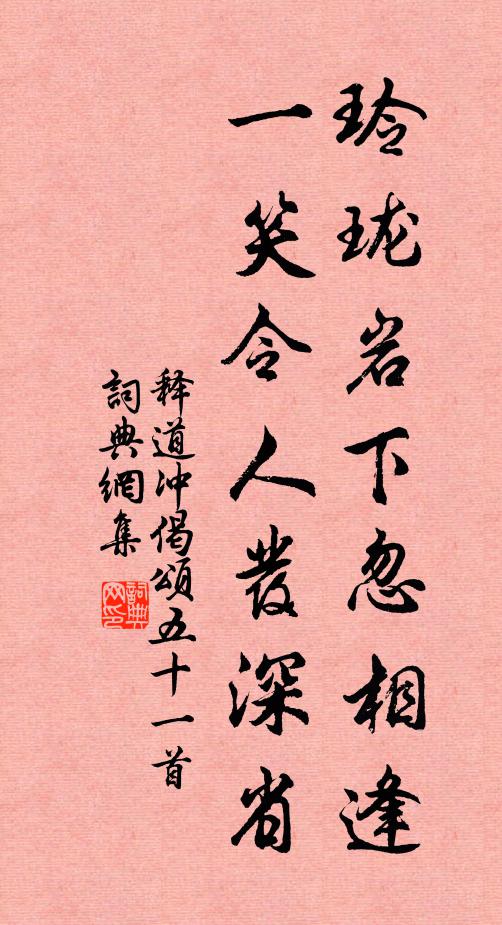 玲珑岩下忽相逢
一笑令人發深省
释道冲偈頌五十一首
詞典網集
詞典网印